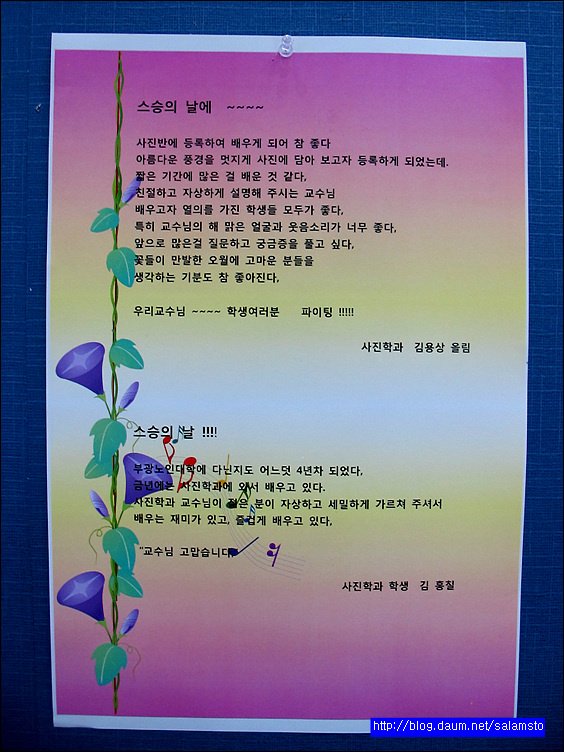 스승의 날에 ~~~~
사진반에 등록하여 배우게 되어 참 좋다
아름다운 풍경을 멋지게 사진에 담아 보고자 등록하게 되었는데.
짧은 기간에 많은 걸 배운 것 같다,
친절하고 자상하게 설명해 주시는 교수님
배우고자 열의를 가진 학생들 모두가 좋다,
특히 교수님의 해 맑은 얼굴과 웃음소리가 너무 좋다,
앞으로 많은걸 질문하고 궁금증을 풀고 싶다,
꽃들이 만발한 오월에 고마운 분들을
생각하는 기분도 참 좋아진다,
우리교수님 ~~~~ 학생여러분 파이팅 !!!!!
사진학과 김용상 올림
스승의 날 !!!!
부광노인대학에 다닌지도 어느덧 4년차 되었다,
금년에는 사진학과에 와서 배우고 있다.
사진학과 교수님이 젊은 분이 자상하고 세밀하게 가르쳐 주셔서
배우는 재미가 있고, 즐겁게 배우고 있다,
"교수님 고맙습니다
사진학과 학생 김 홍칠
http://blog.daum.net/salamsto